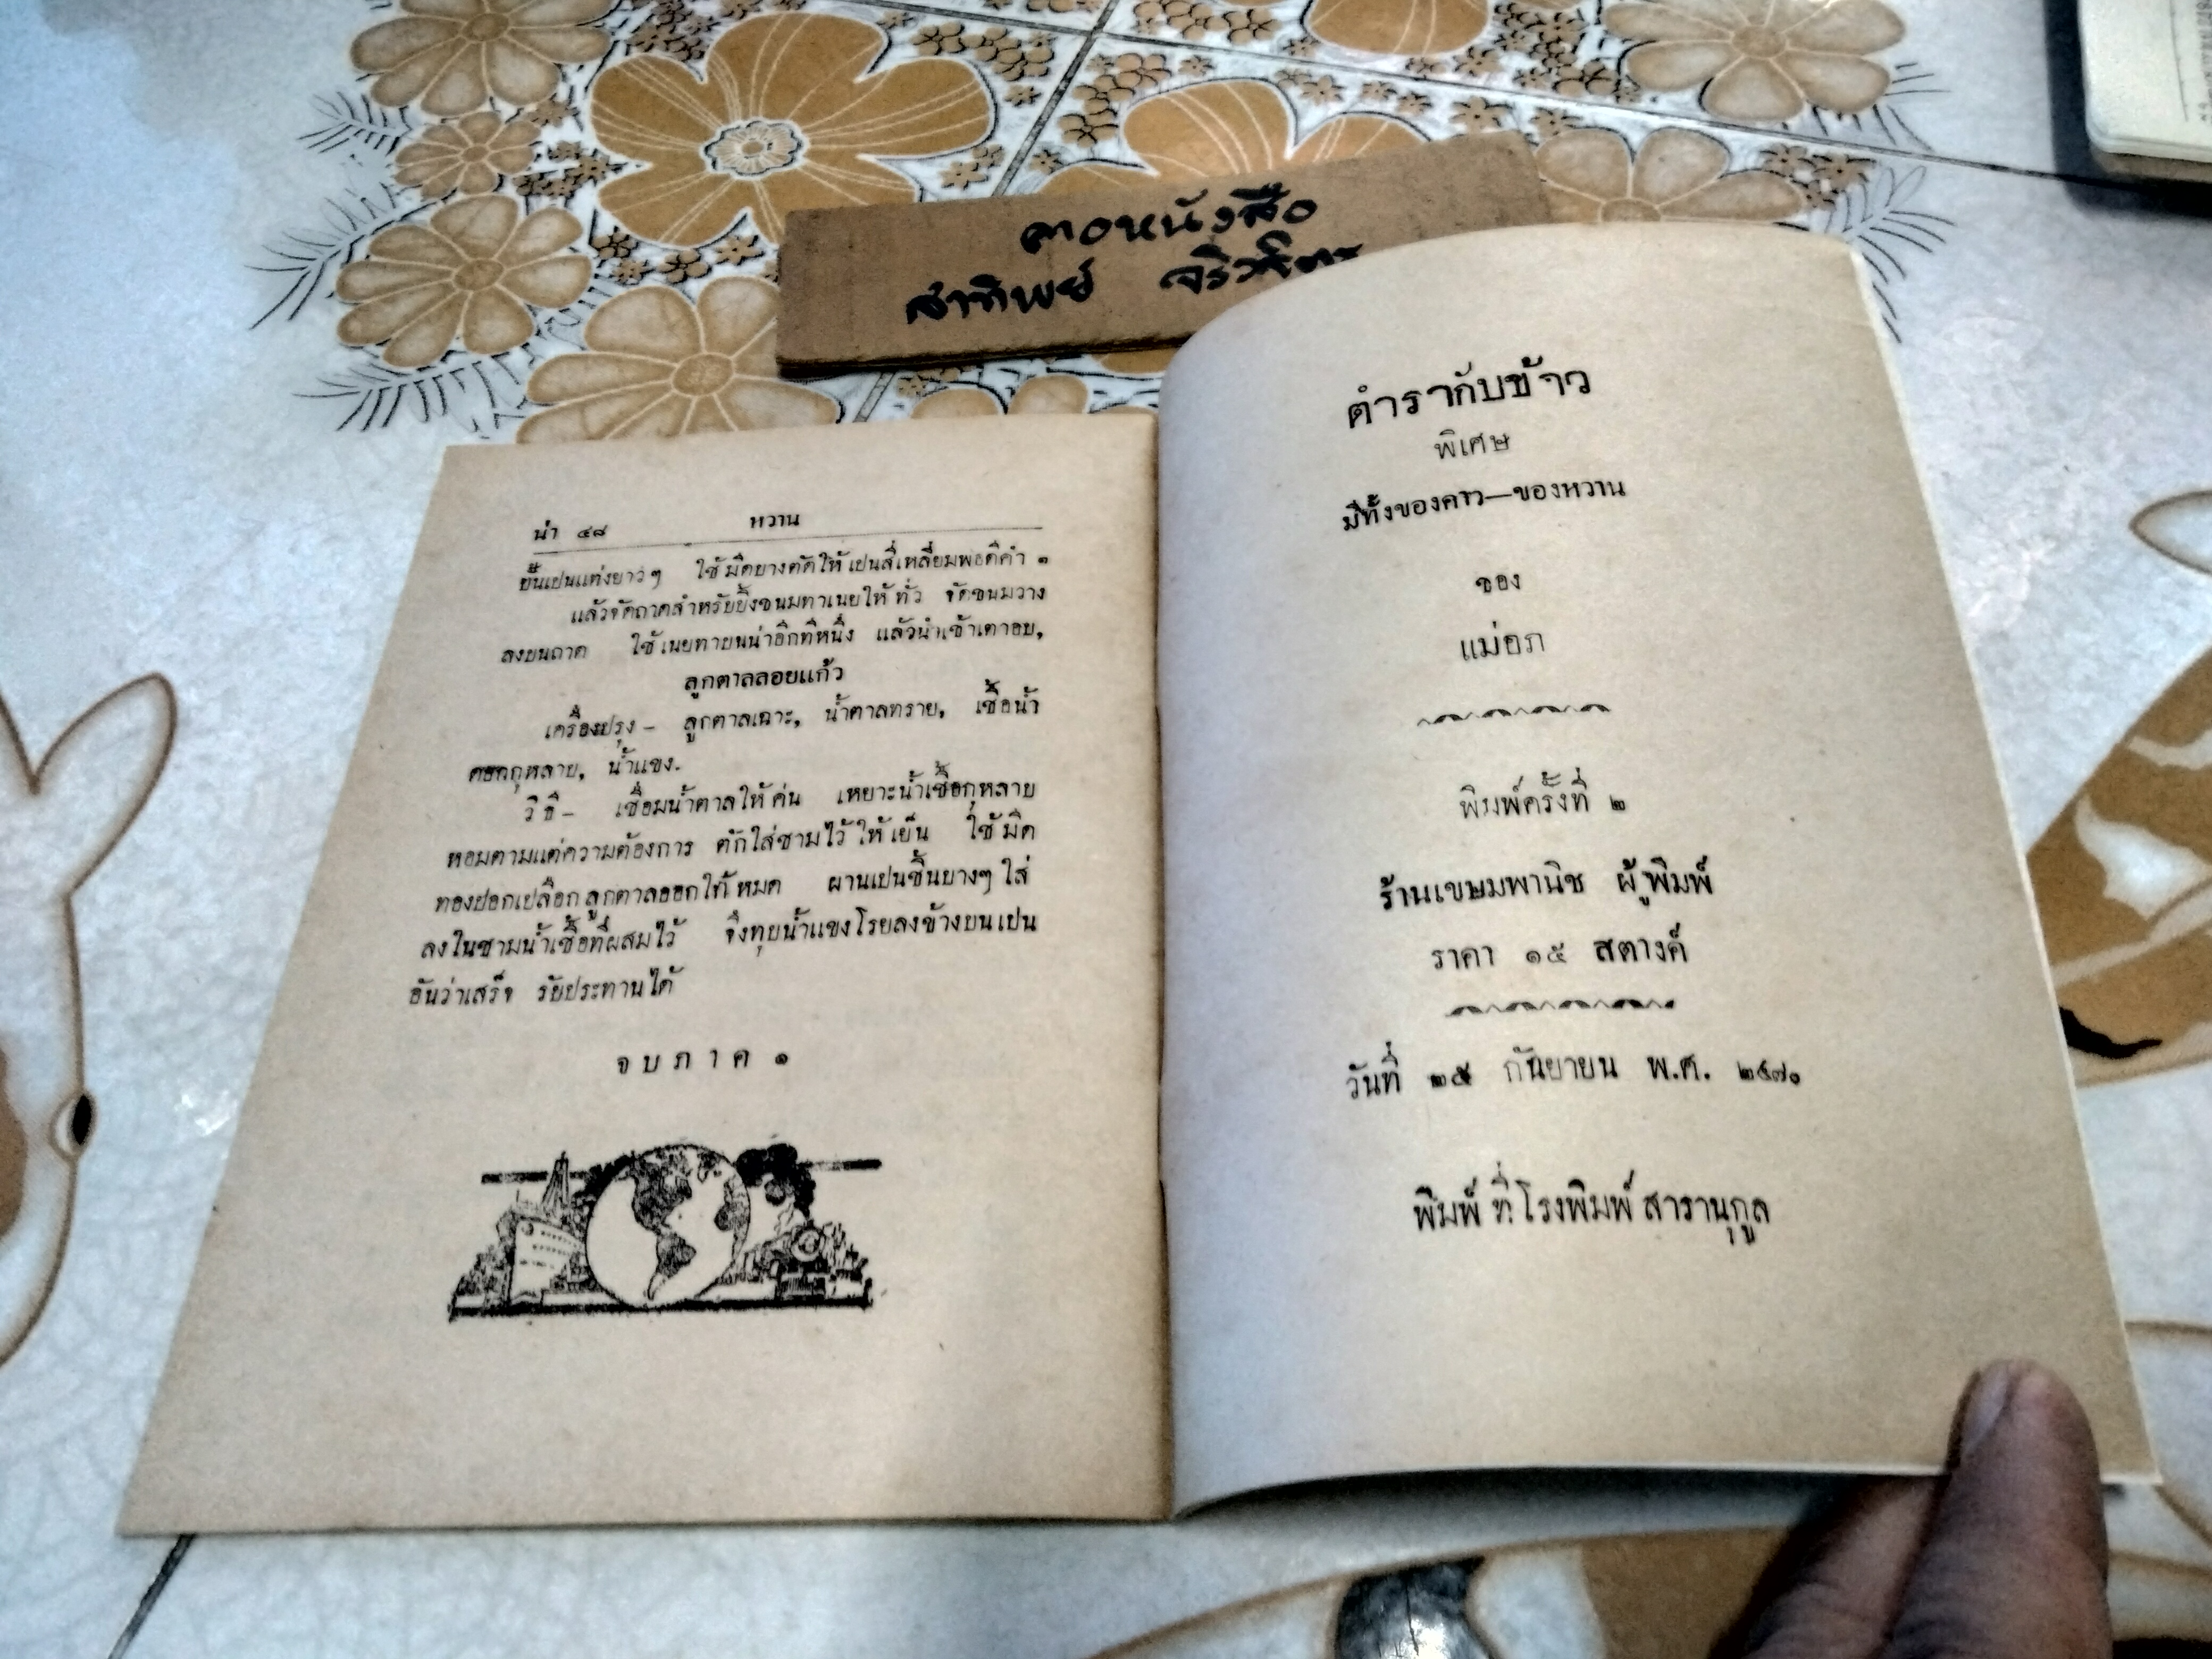 ฅอหนังสือ
สาทิพย์
น่า ๔๘ หวาน
ปั้นเปนแท่งยาวๆ ใช้มีดบางตัดให้เปนสี่เหลี่ยมพอดีคำ ๑
แล้วจัดถาดสำหรับปิ้งขนมทาเนยให้ทั่ว จัดขนมวาง
ลงบนถาด ใช้เนยทาบนน่าอีกทีหนึ่ง แล้วนำเข้าเตาอบ,
ลูกตาลลอยแก้ว
เครื่องปรุง – ลูกตาลเฉาะ, น้ำตาลทราย, เชื้อน้ำ
ดอกกุหลาบ, น้ำแขง.
วิธี – เชื่อมน้ำตาลให้ค่น เหยาะน้ำเชื้อกุหลาบ
หอมตามแต่ความต้องการ ตักใส่ชามไว้ให้เย็น ใช้มีด
ทองปอกเปลือกลูกตาลออกให้หมด ผานเปนชิ้นบางๆ ใส่
ลงในชามน้ำเชื้อที่ผสมไว้ จึงทุบน้ำแขงโรยลงข้างบนเปน
อันว่าเสร็จ รับประทานได้
จบภาค ๑
ตำรากับข้าว
พิเศษ
มีทั้งของคาว—ของหวาน
ของ
แม่อภ
พิมพ์ครั้งที่ ๒
ร้านเขษมพานิช ผู้พิมพ์
ราคา ๑๕ สตางค์
วันที่ ๒๕ กันยายน พ.ศ. ๒๔๗๑
พิมพ์ ที่ โรงพิมพ์ สารานุกูล